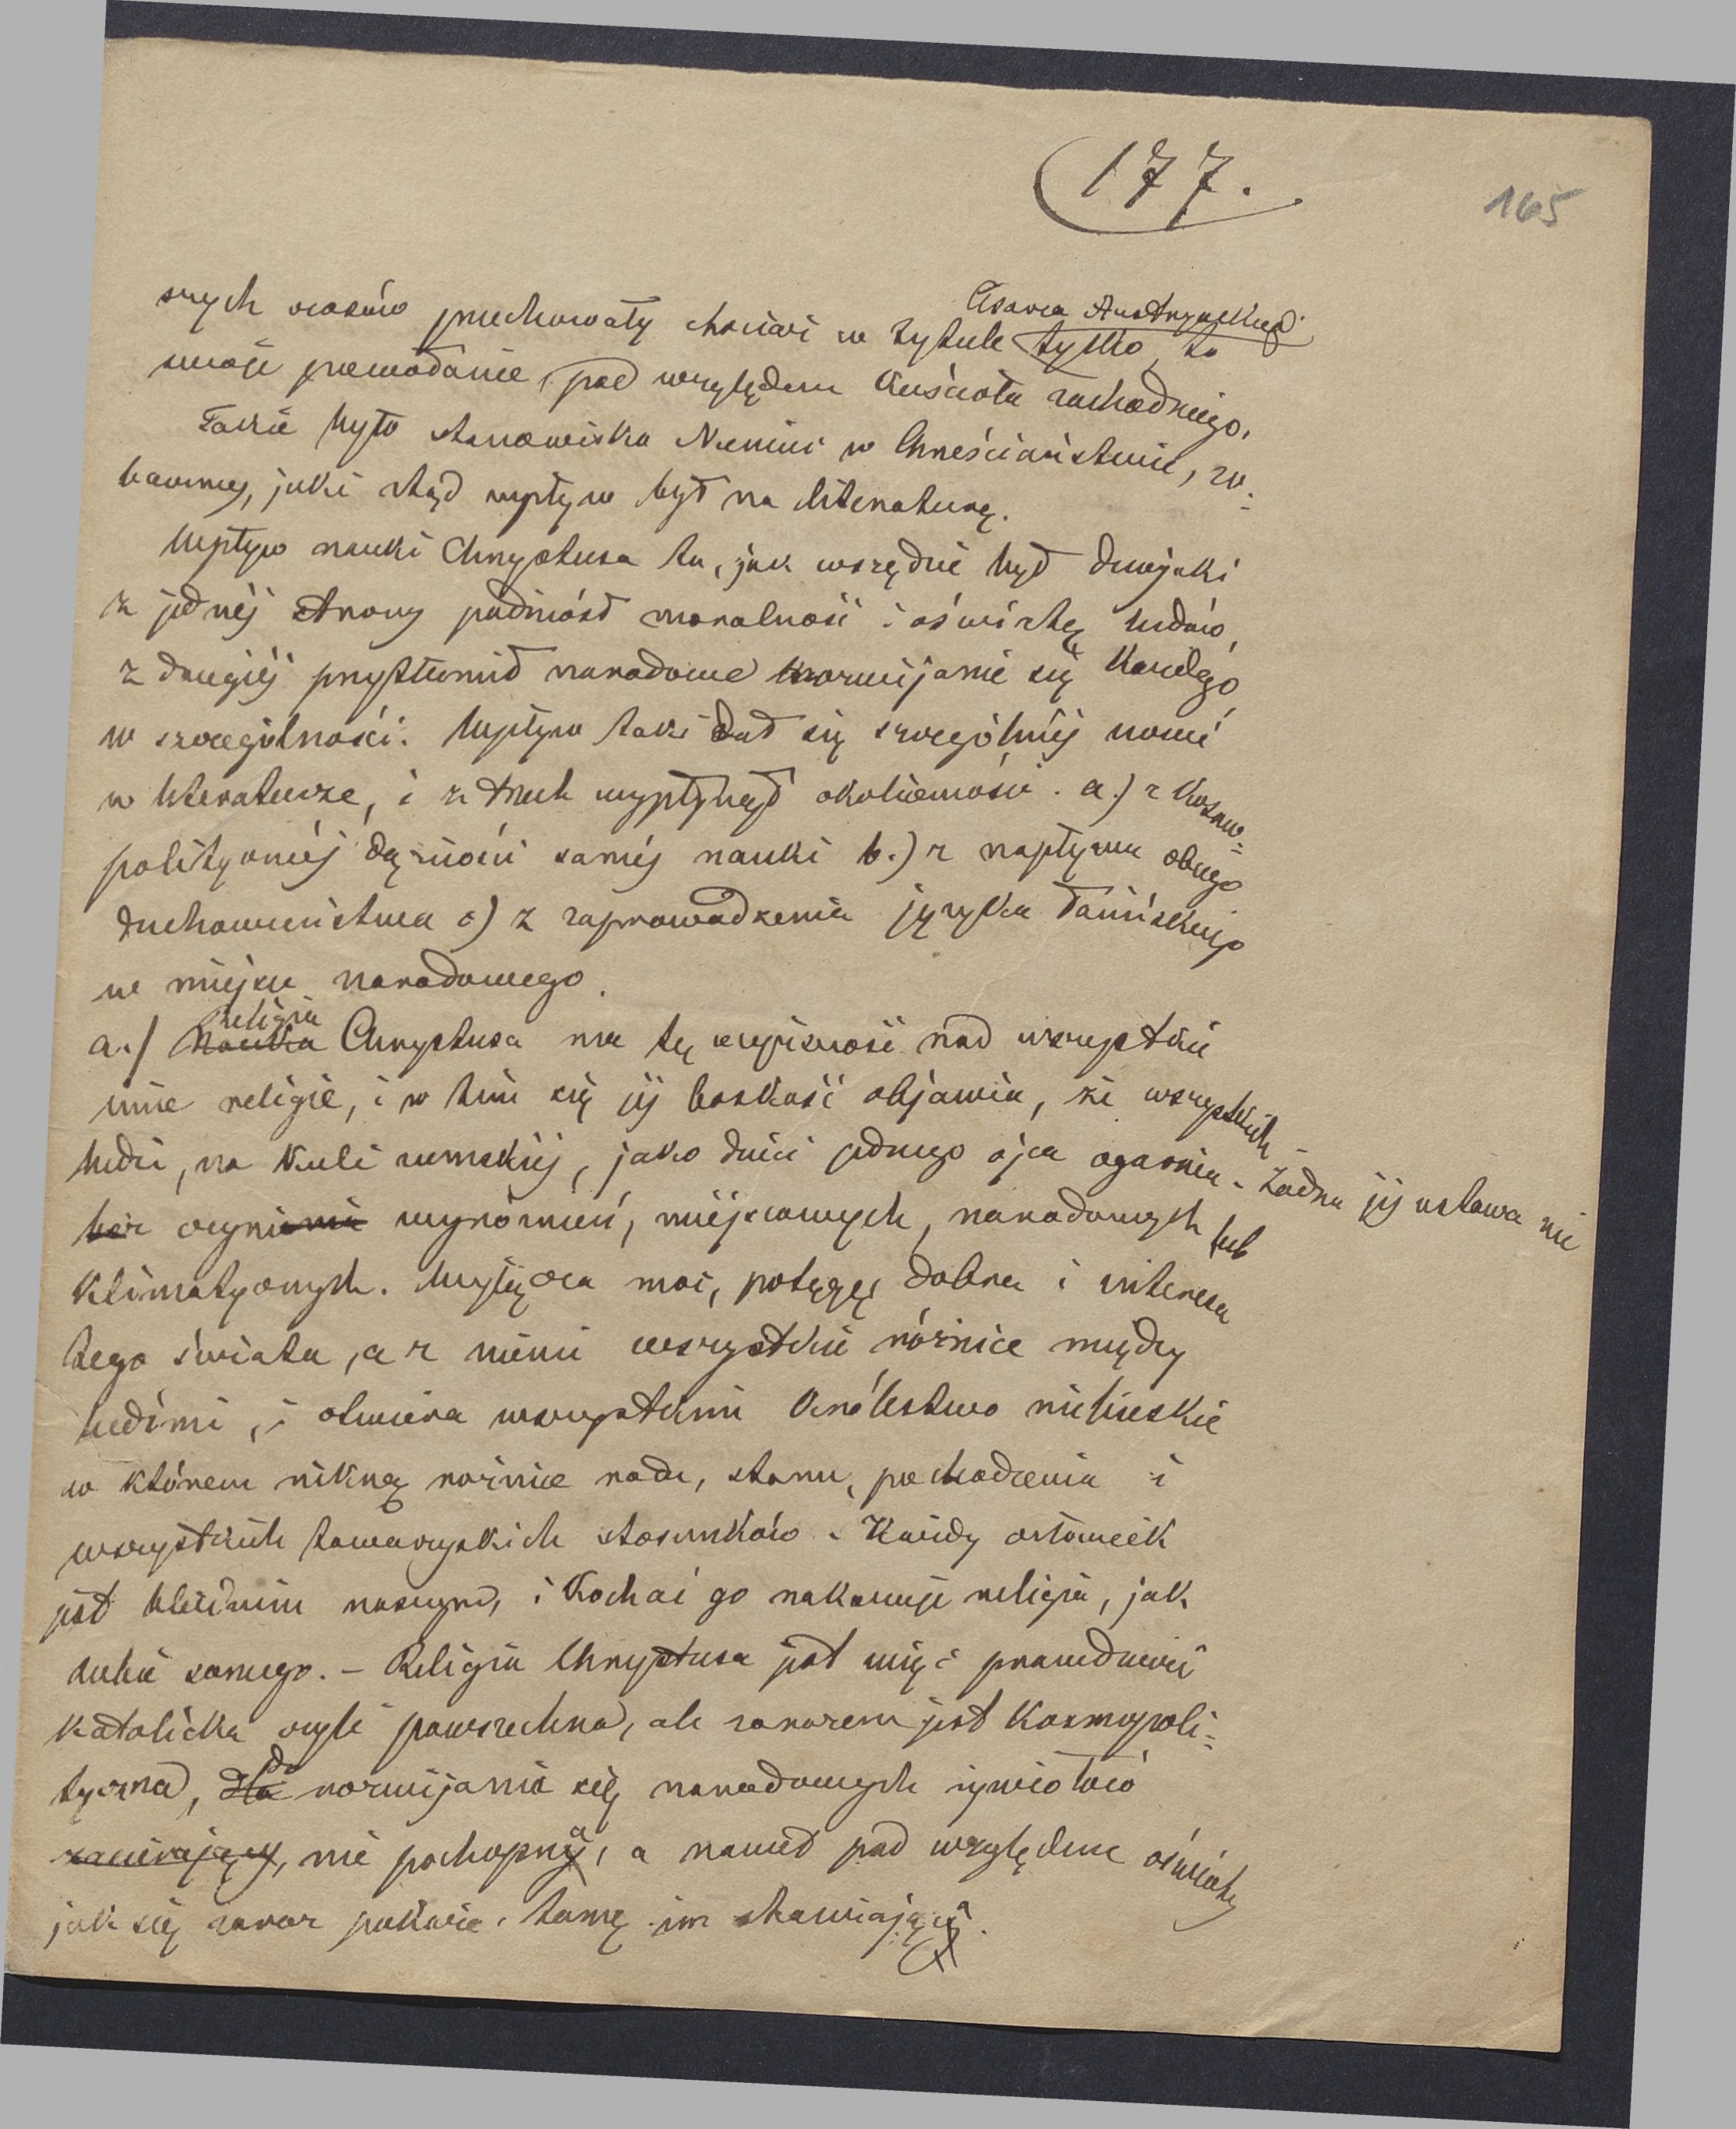 177.
165
szych czasów przechowały chociaż w tytule tylko Cesarza Austryackiego, to
swoje przewodnie, pod względem kościoła zachodniego.
Takie było stanowisko Niemiec w Chrześciaństwie, zo-
baczmy, jaki ztąd wpływ był na literaturę.
Wpływ nauki Chrystusa tu, jak wszędzie był dwojaki
z jednéj strony podniósł moralność i oświatę ludów,
z drugiéj przytłumił narodowe rozwijanie się każdego
w szczególności. Wpływ taki dał się szczególniéj uczuć
w literaturze, i z trzech wypłynął okoliczności. a.) z kosmo-
polityczněj dążności saméj nauki b.) z napływu obcego
duchowieństwa c) z zaprowadzenia języka łacińskiego
w miejsce narodowego.
a.) nauka religia Chrystusa ma tę wyższość nad wszystkie
inne religie, i w tém się jéj boskość objawia, że wszystkich
ludzi, na kuli ziemskiéj, jako dzieci jednego ojca ogarnia. Żadna jéj ustawa nie
bez czynienia wyróżnień, miejscowych, narodowych lub
klimatycznych. Wyłącza moc, potęgę dobra i interesa
tego świata, a z niemi wszystkie różnice między
ludźmi, i otwiera wszystkim królestwo niebieskie
w którem nikną różnice rodu, stanu, pochodzenia i
wszystkich towarzyskich stosunków. Każdy człowiek
jest bliźnim naszym, i kochać go nakazuje religia, jak
siebie samego. – Religia Chrystusa jest więc prawdziwie
katolicka czyli powszechna, ale zarazem jest kosmopoli-
tyczna, dla do rozwijania się narodowych żywiołów
zacierający, nie pochopną, a nawet pod względem oświaty
jak się zaraz pokaże, tamę im stawiającą.